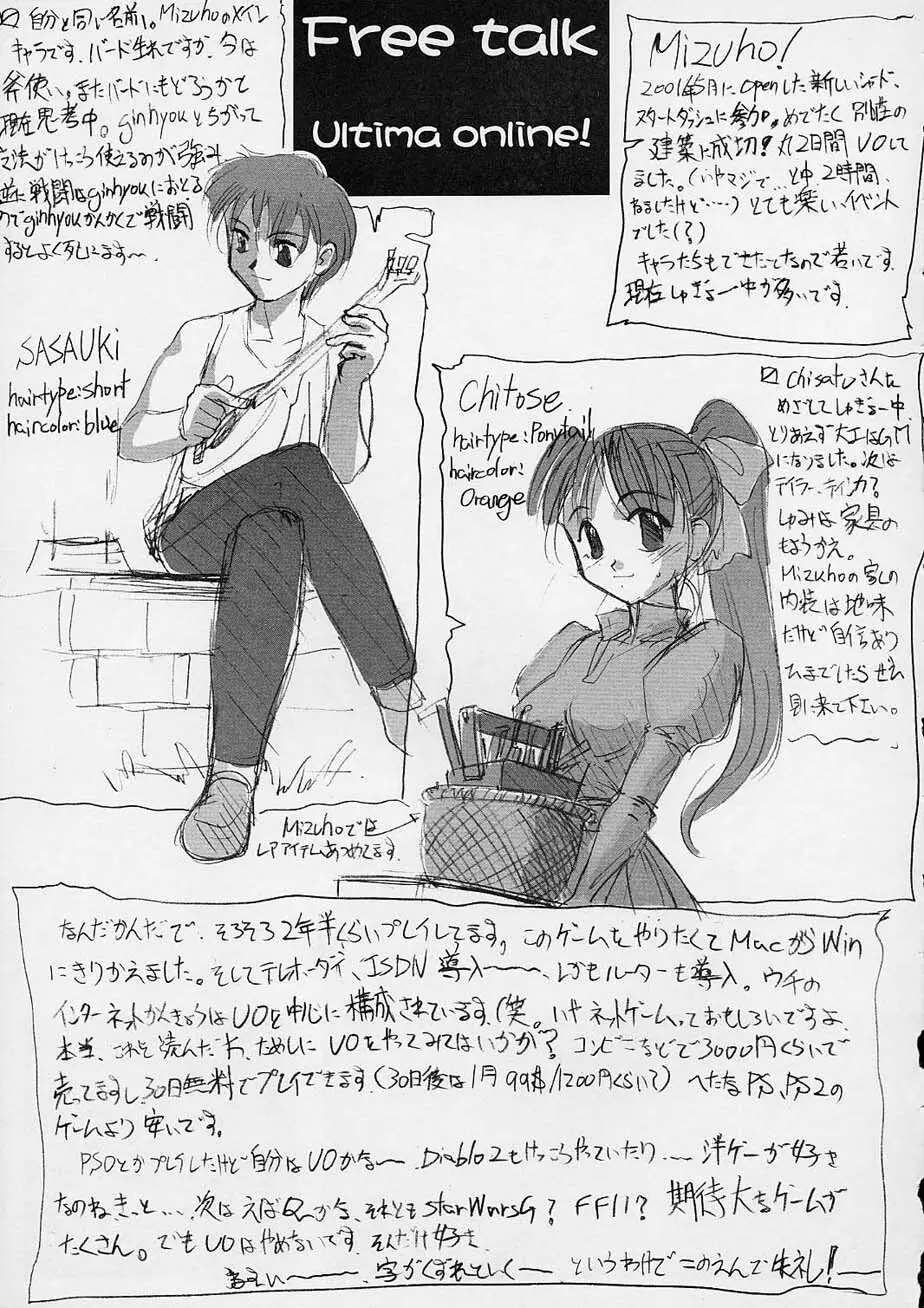 Free talk
Ultima online!
Mizuho!
2001年5月にOpenした新しいシャド、
スタートダッシュに参加。めでたく別荘の
建築に成功！丸2日間UOして
ました。（いやマジで…と中2時間、
ねましたけど……）とても楽しいイベント
でした（？）
キャラたちもできたてなので若いです。
現在しゅぎょー中が多いです。
自分と同じ名前。Mizuhoのメイン
キャラです。バード生れですが、今は
斧使い。またバードにもどろうかて
現在思考中。ginhyouとちがって
魔法がけっこう使えるのが強み
逆に戦闘はginhyouにおとる
のでginhyouかんかくで戦闘
するとよく死にます〜。
SASAUKi
hairtype:short
haircolor:blue
Chitose
hairtype:Ponytail
haircolor:
Orange
chisatoさんを
めざしてしゅぎょー中
とりあえず大工はGM
になりました。次は
テイラー、ティンカ？
しゅみは家具の
もようがえ。
Mizuhoの家の
内装は地味
だけど自信あり
ひまでしたらぜひ
見に来て下さい。
Mizuhoでは
レアアイテムあつめてます。
なんだかんだで、そろそろ2年半くらいプレイしてます。このゲームをやりたくてMacからWin
にきりかえました。そしてテレホーダイ、ISDN導入〜〜、しかもルーターも導入。ウチの
インターネットかんきょうはUOを中心に構成されています（笑。いやネットゲームっておもしろいですよ、
本当、これを読んだ方、ためしにUOをやってみてはいかが？コンビニなどで3000円くらいで
売ってますし30日無料でプレイできます（30日後は1月99$/1200円くらいで）へたなPS、PS2の
ゲームより安いです。
PSOとかプレイしたけど自分はUOかな〜 Diablo2もけっこうやっていたり…洋ゲーが好き
なのねきっと…、次はえばQ〜かな、それともStarWarsG？FF11？期待大なゲームが
たくさん。でもUOはやめないです。そんだけ好き
字がくずれていく〜 というわけでこのへんで失礼！